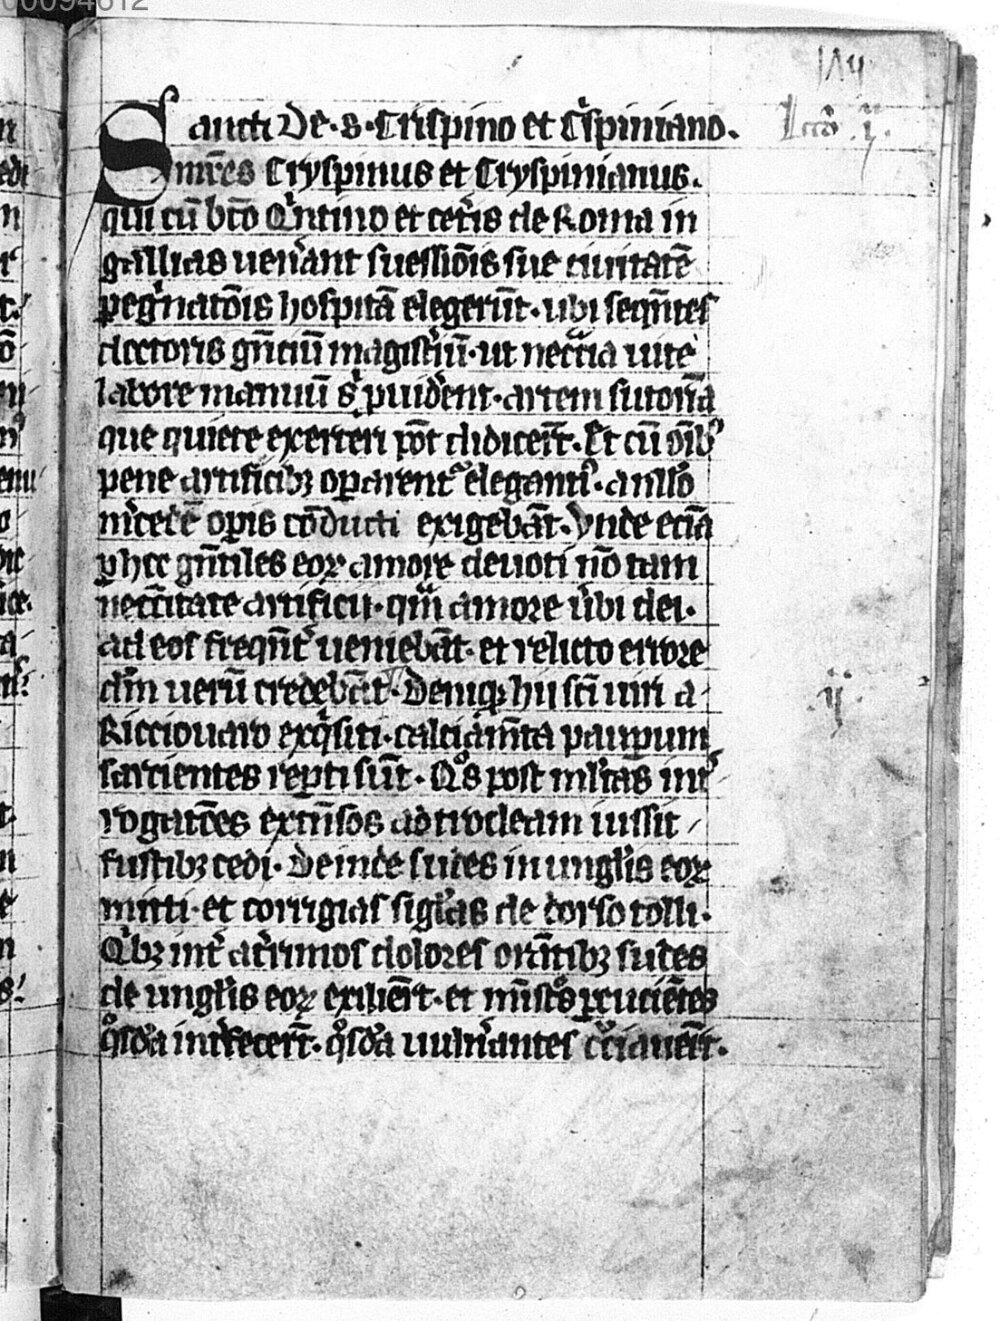 00094612
114
Sancti De · s · Crispino et C͛spiniano . Lectio . j .
mr̄es Cryspinus et Cryspinianus .
qui cū bt̄o Q͛ntino et cet͛is de Roma in
gallias uen͛ant suessiōis sue ciuitatē
peg͛natōis hospitā elegerūt · ubi seqn̄tes
doctoris gn̄ciū magist͛iū · ut necc̄ia uite
labore manuū s͛ puid͛ent · artem sutoriā
que quiete exerceri pōt didicer̄t · Et cū oīb᷒
pene artificibꝫ oꝑarent᷒ elegant͛ · a nllo
m͛cedē oꝑis cōducti exigebāt · Vnde eciā
ꝑ hec gn̄tiles eoꝝ amore deuoti nō tam
necc̄itate artificii · qm̄ amore u͛bi dei ·
ad eos freqn̄t͛ ueniebāt · et relicto errore
dm̄ uerū credebāt · Deniqꝫ hii sc̄i uiri a . ij .
Riccionaro exq͛siti · calciam̄ta pauꝑum
sarcientes reꝑti sūt · Q͛s post ml͛tas int͛
rogatōes extn̄sos ad trocleam iussit
fustibꝫ cedi · Deinde sudes in ungl͛is eoꝝ
mitti · et corrigias sigl͛as de dorso tolli ·
Q͛bꝫ int͛ ac͛rimos dolores orāntibꝫ sudes
de ungl͛is eoꝝ exilier̄t · et mīst͛os ꝑcucientes
q͛sdā int͛fecer̄t · q͛sdā uuln͛antes c͛ciauer̄t ·